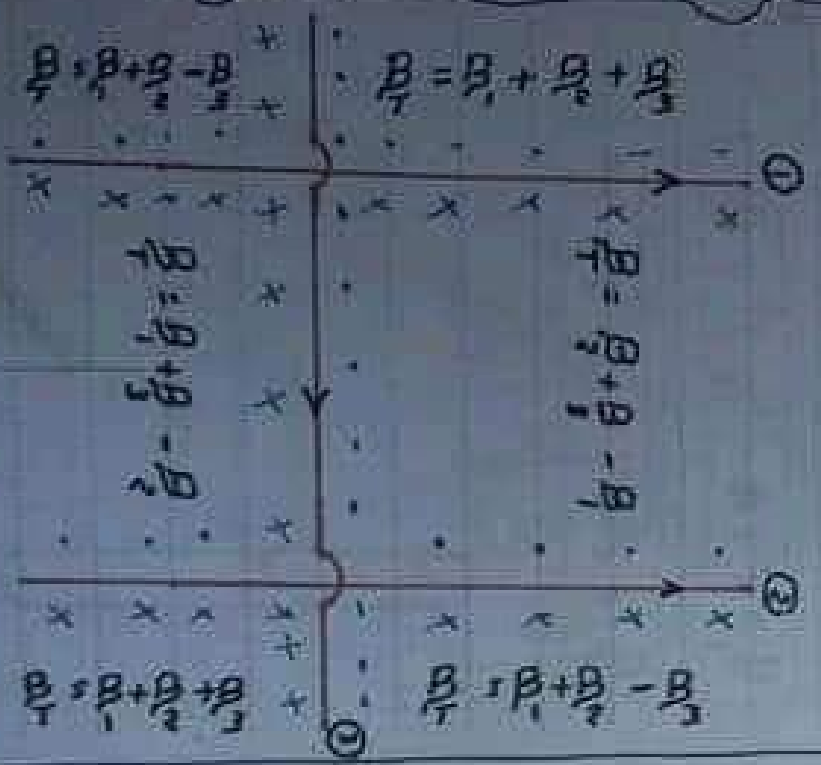 B_T = B_1 + B_2 - B_3
B_T = B_1 + B_2 + B_3
①
B_T = B_1 + B_3 - B_2
B_T = B_2 + B_3 - B_1
②
B_T = B_1 + B_2 + B_3
B_T = B_1 + B_2 - B_3
③